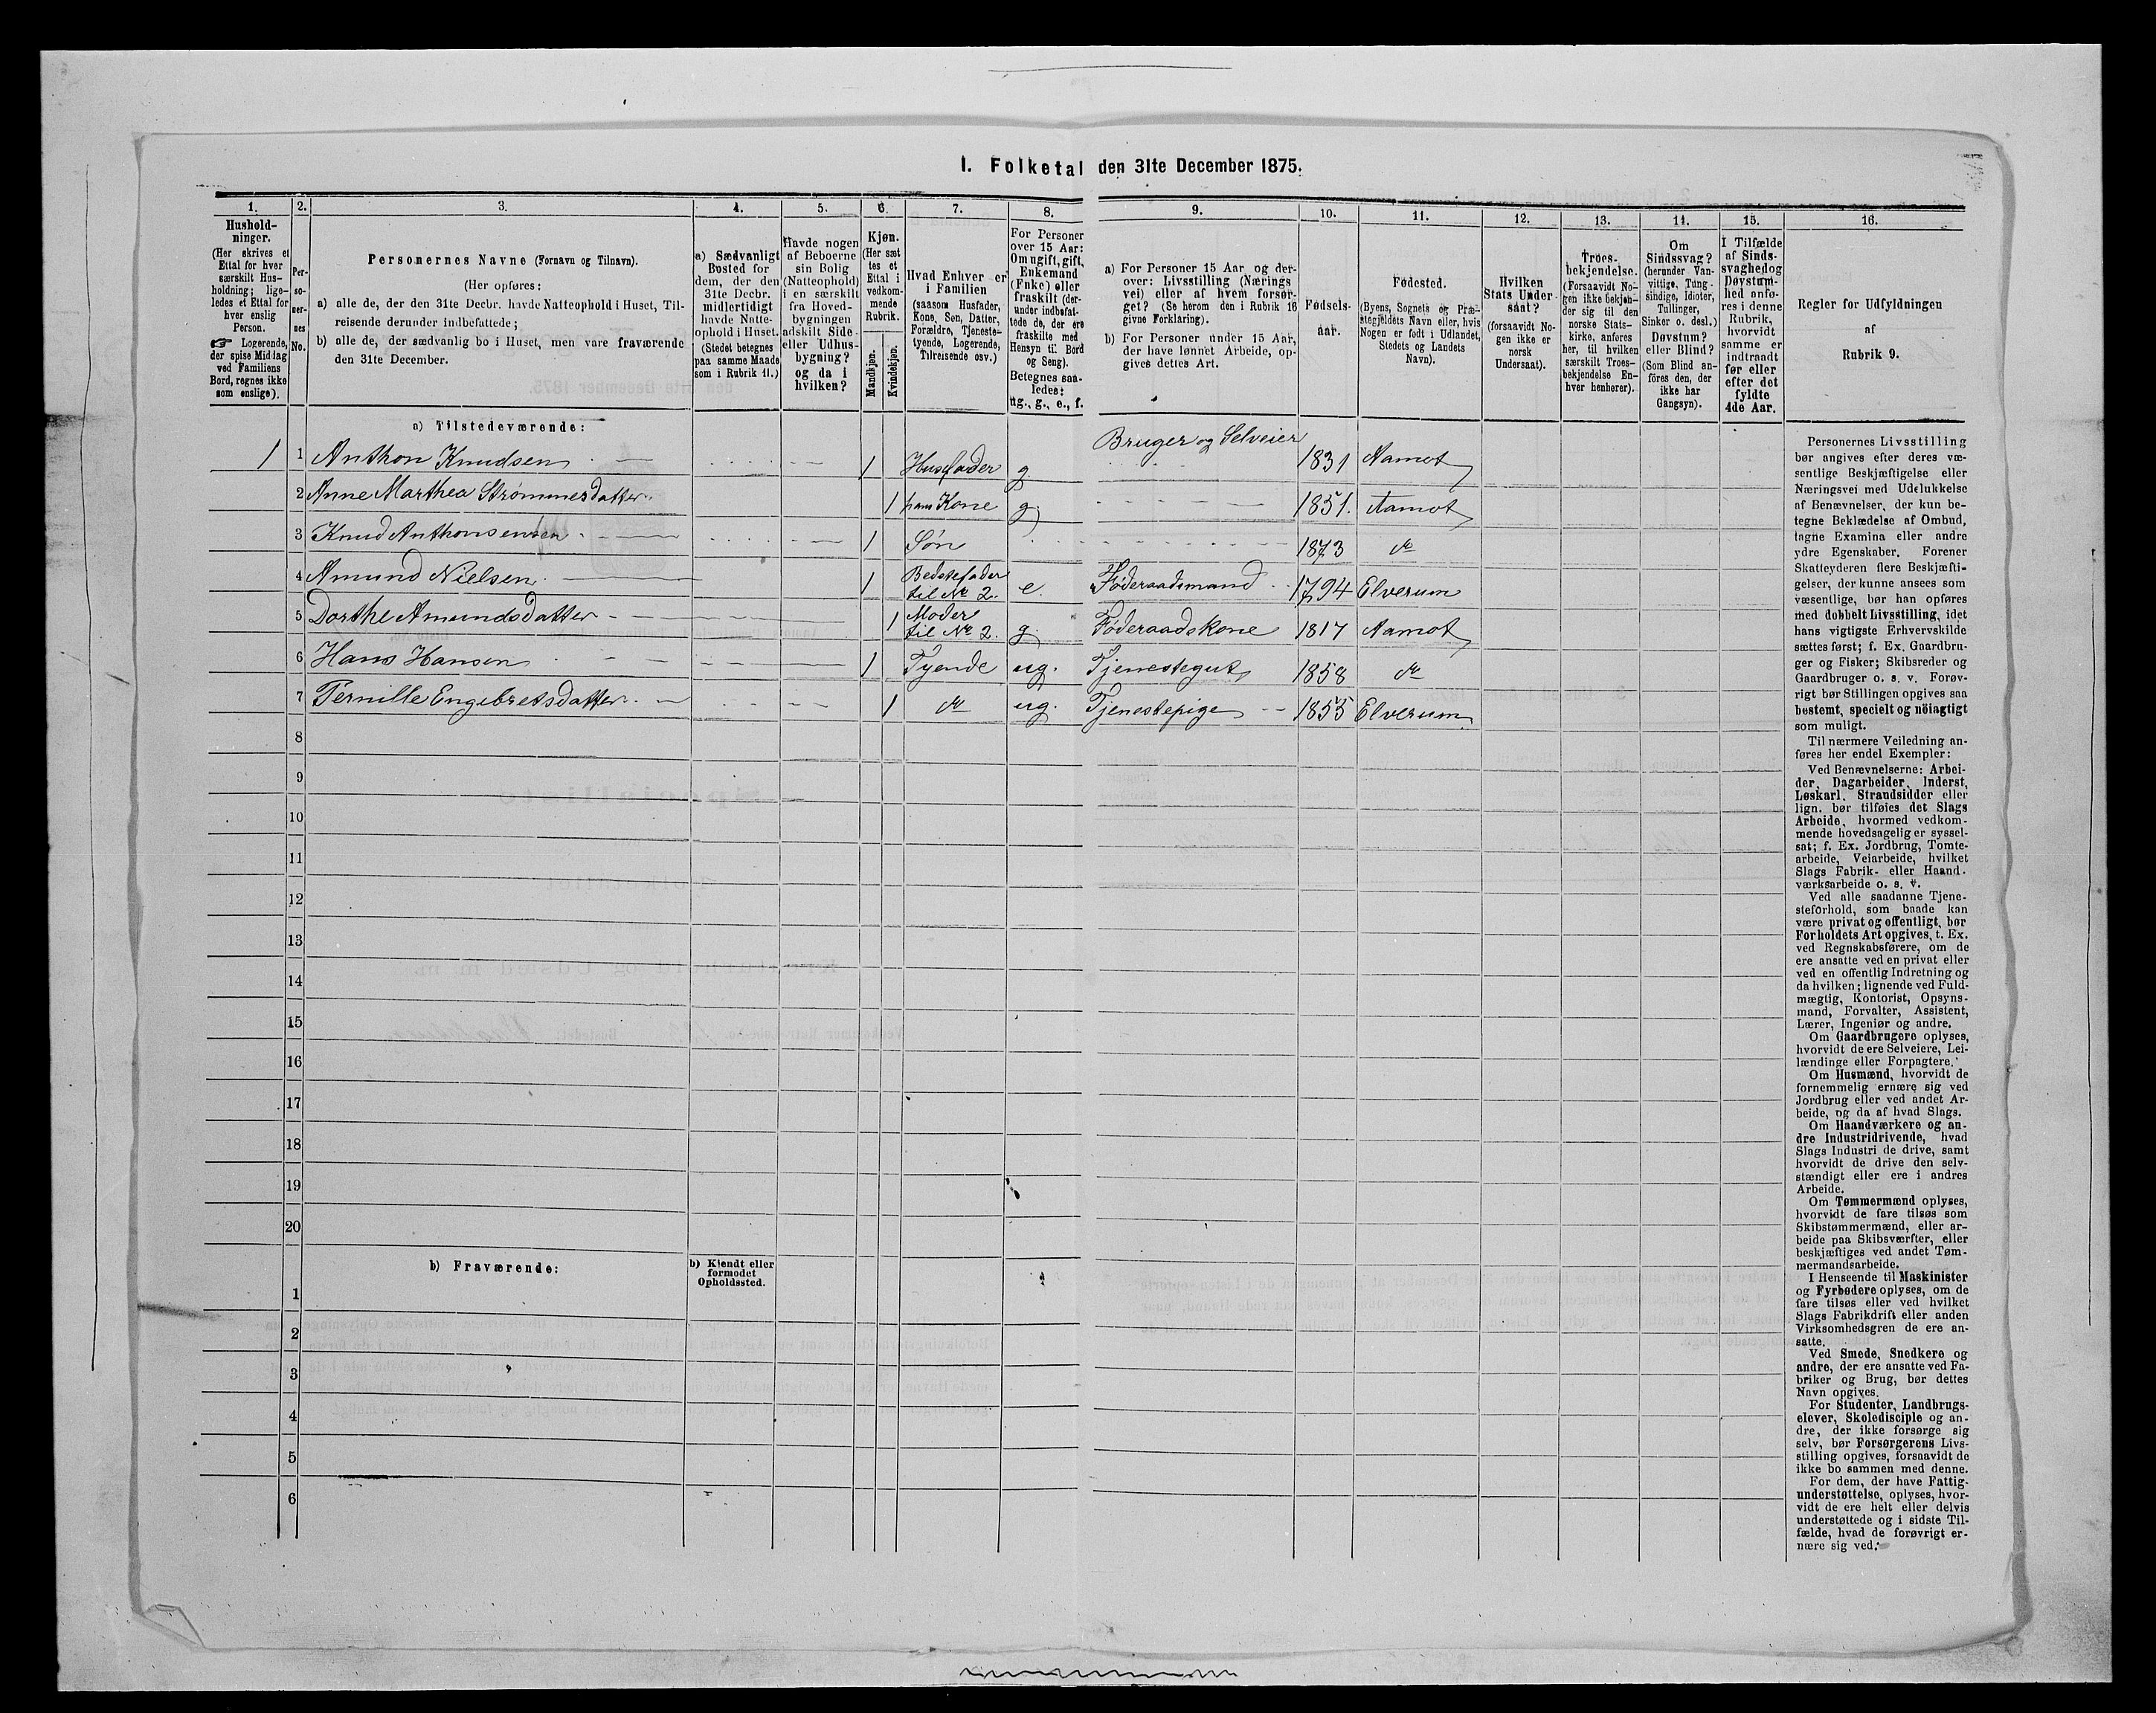 I. Folketal den 31te December 1875.
1. 2. 3. 4. 5. 6. 7. 8. 9. 10. 11. 12. 13. 14. 15. 16.
Hushold-
ninger.
(Her skrives et
Ettal for hver
særskilt Hus-
holdning; lige-
ledes et Ettal for
hver enslig
Person.
☞ Logerende,
der spise Middag
ved Familiens
Bord, regnes ikke
som enslige).
Per-
so-
ner-
nes
No.
Personernes Navne (Fornavn og Tilnavn).
(Her opføres:
a) alle de, der den 31te Decbr. havde Natteophold i Huset, Til-
reisende derunder indbefattede;
b) alle de, der sædvanlig bo i Huset, men vare fraværende
den 31te December.
a) Sædvanligt
Bosted for
dem, der den
31te Decbr.
midlertidigt
havde Natte-
ophold i Huset.
(Stedet betegnes
paa samme Maade
som i Rubrik 11.)
Havde nogen
af Beboerne
sin Bolig
(Natteophold)
i en særskilt
fra Hoved-
bygningen
adskilt Side-
eller Udhus-
bygning?
og da i
hvilken?
Kjøn.
(Her sæt
tes et
Ettal i
vedkom-
mende
Rubrik.
Mandkjøn.
Kvindekjøn.
Hvad Enhver er
i Familien
(saasom Husfader,
Kone, Søn, Datter,
Forældre, Tjeneste-
tyende, Logerende,
Tilreisende osv.)
For Personer
over 15 Aar:
Om ugift, gift,
Enkemand
(Enke) eller
fraskilt (der-
under indbefat-
tede de, der ere
fraskilte med
Hensyn til Bord
og Seng).
Betegnes saa-
ledes:
ug., g., e., f.
a) For Personer 15 Aar og der-
over: Livsstilling (Nærings
vei) eller af hvem forsør-
get? (Se herom den i Rubrik 16
givne Forklaring).
b) For Personer under 15 Aar,
der have lønnet Arbeide, op-
gives dettes Art.
Fødsels-
aar.
Fødested.
(Byens, Sognets og Præ-
stegjeldets Navn eller, hvis
Nogen er født i Udlandet,
Stedets og Landets
Navn).
Hvilken
Stats Under-
saat?
(forsaavidt No-
gen ikke er
norsk
Undersaat).
Troes-
bekjendelse.
(Forsaavidt No-
gen ikke bekjen-
der sig til den
norske Stats-
kirke, anføres
her, til hvilken
særskilt Troes-
bekjendelse En-
hver henhører).
Om
Sindssvag?
(herunder Van-
vittige, Tung-
sindige, Idioter,
Tullinger,
Sinker o. desl.)
Døvstum?
eller Blind?
(Som Blind an-
føres den, der
ikke har
Gangsyn).
I Tilfælde
af Sinds-
svaghed og
Døvstum-
hed anfø-
res i denne
Rubrik,
hvorvidt
samme er
indtraadt
før eller
efter det
fyldte
4de Aar.
Regler for Udfyldningen
af
Rubrik 9.
a) Tilstedeværende:
1 1 Anthon Knudsen 1 Husfader g Bruger og Selveier 1831 Aamot
2 Anne Marthea Strømmesdatter 1 hans Kone g 1851. Aamot
3 Knud Anthonsen 1 Søn 1873 do
4 Amund Nielsen 1 Bedstefader til No 2. e. Føderaadsmand 1794 Elverum
5 Dorthe Amundsdatter 1 Moder til No 2. g Føderaadskone 1817 Aamot
6 Hans Hansen 1 Tyende ug. Tjenestegut 1858 do
7 Pernille Engebretsdatter 1 do ug. Tjenestepige 1855 Elverum
8
9
10
11
12
13
14
15
16
17
18
19
20
b) Fraværende:
b) Kjendt eller
formodet
Opholdssted.
1
2
3
4
5
6
Personernes Livsstilling
bør angives efter deres væ-
sentlige Beskjæftigelse eller
Næringsvei med Udelukkelse
af Benævnelser, der kun be-
tegne Beklædelse af Ombud,
tagne Examina eller andre
ydre Egenskaber. Forener
Skatteyderen flere Beskjæfti-
gelser, der kunne ansees som
væsentlige, bør han opføres
med dobbelt Livsstilling, idet
hans vigtigste Erhvervskilde
sættes først; f. Ex. Gaardbru-
ger og Fisker; Skibsreder og
Gaardbruger o. s. v. Forøv-
rigt bør Stillingen opgives saa
bestemt, specielt og nöiagtigt
som muligt.
Til nærmere Veiledning an-
føres her endel Exempler:
Ved Benævnelserne: Arbei-
der, Dagarbeider, Inderst,
Løskarl, Strandsidder eller
lign. bør tilføies det Slags
Arbeide, hvormed vedkom-
mende hovedsagelig er syssel-
sat; f. Ex. Jordbrug, Tomte-
arbeide, Veiarbeide, hvilket
Slags Fabrik- eller Haand-
værksarbeide o. s. v.
Ved alle saadanne Tjene-
steforhold, som baade kan
være privat og offentligt, bør
Forholdets Art opgives, t. Ex.
ved Regnskabsførere, om de
ere ansatte ved en privat eller
ved en offentlig Indretning og
da hvilken; lignende ved Fuld-
mægtig, Kontorist, Opsyns-
mand, Forvalter, Assistent,
Lærer, Ingeniør og andre.
Om Gaardbrugere oplyses,
hvorvidt de ere Selveiere, Lei-
lændinge eller Forpagtere.
Om Husmænd, hvorvidt de
fornemmelig ernære sig ved
Jordbrug eller ved andet Ar-
beide, og da af hvad Slags.
Om Haandværkere og an-
dre Industridrivende, hvad
Slags Industri de drive, samt
hvorvidt de drive den selv-
stændigt eller ere i andres
Arbeide.
Om Tømmermænd oplyses,
hvorvidt de fare tilsøs som
Skibstømmermænd, eller ar-
beide paa Skibsværfter, eller
beskjæftiges ved andet Tøm-
mermandsarbeide.
I Henseende til Maskinister
og Fyrbødere oplyses, om de
fare tilsøs eller ved hvilket
Slags Fabrikdrift eller anden
Virksomhedsgren de ere an-
satte.
Ved Smede, Snedkere og
andre, der ere ansatte ved Fa-
briker og Brug, bør dettes
Navn opgives.
For Studenter, Landbrugs-
elever, Skoledisciple og an-
dre, der ikke forsørge sig
selv, bør Forsørgerens Livs-
stilling opgives, forsaavidt de
ikke bo sammen med denne.
For dem, der have Fattig-
understøttelse, oplyses, hvor-
vidt de ere helt eller delvis
understøttede og i sidste Til-
fælde, hvad de forøvrigt er-
nære sig ved.